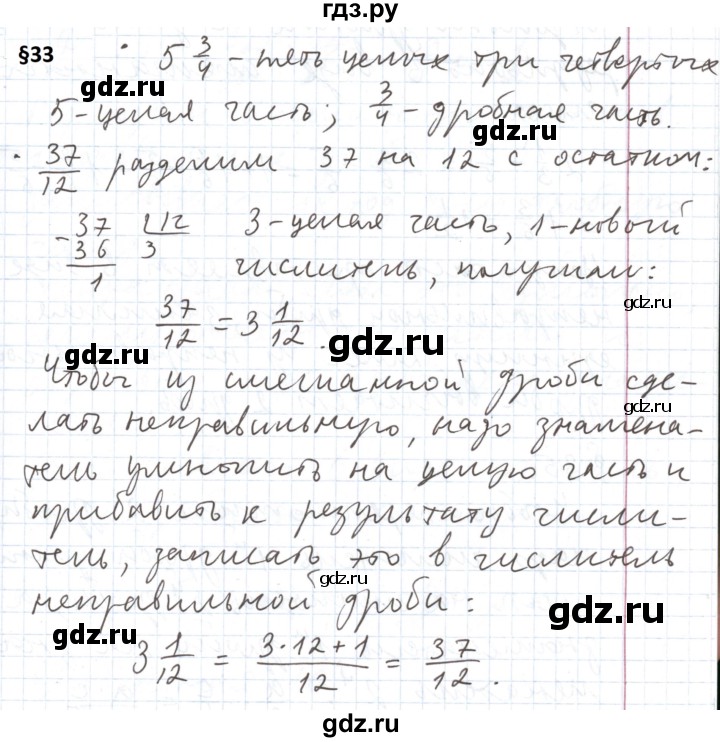 гдз.ру
§33 • 5 3/4 - пять целых три четвертых
gdz.ru
5 - целая часть; 3/4 - дробная часть.
gdz.ru
• 37/12 разделим 37 на 12 с остатком:
- 37 | 12 3 - целая часть, 1 - новый
36 3
1 числитель, получили:
gdz.ru
37/12 = 3 1/12.
gdz.ru
Чтобы из смешанной дроби сде-
gdz.ru
лать неправильную, надо знамена-
gdz.ru
тель умножить на целую часть и
прибавить к результату числи-
тель, записать это в числитель
gdz.ru
неправильной дроби:
gdz.ru
gdz.ru
3 1/12 = 3·12+1/12 = 37/12.
gdz.ru